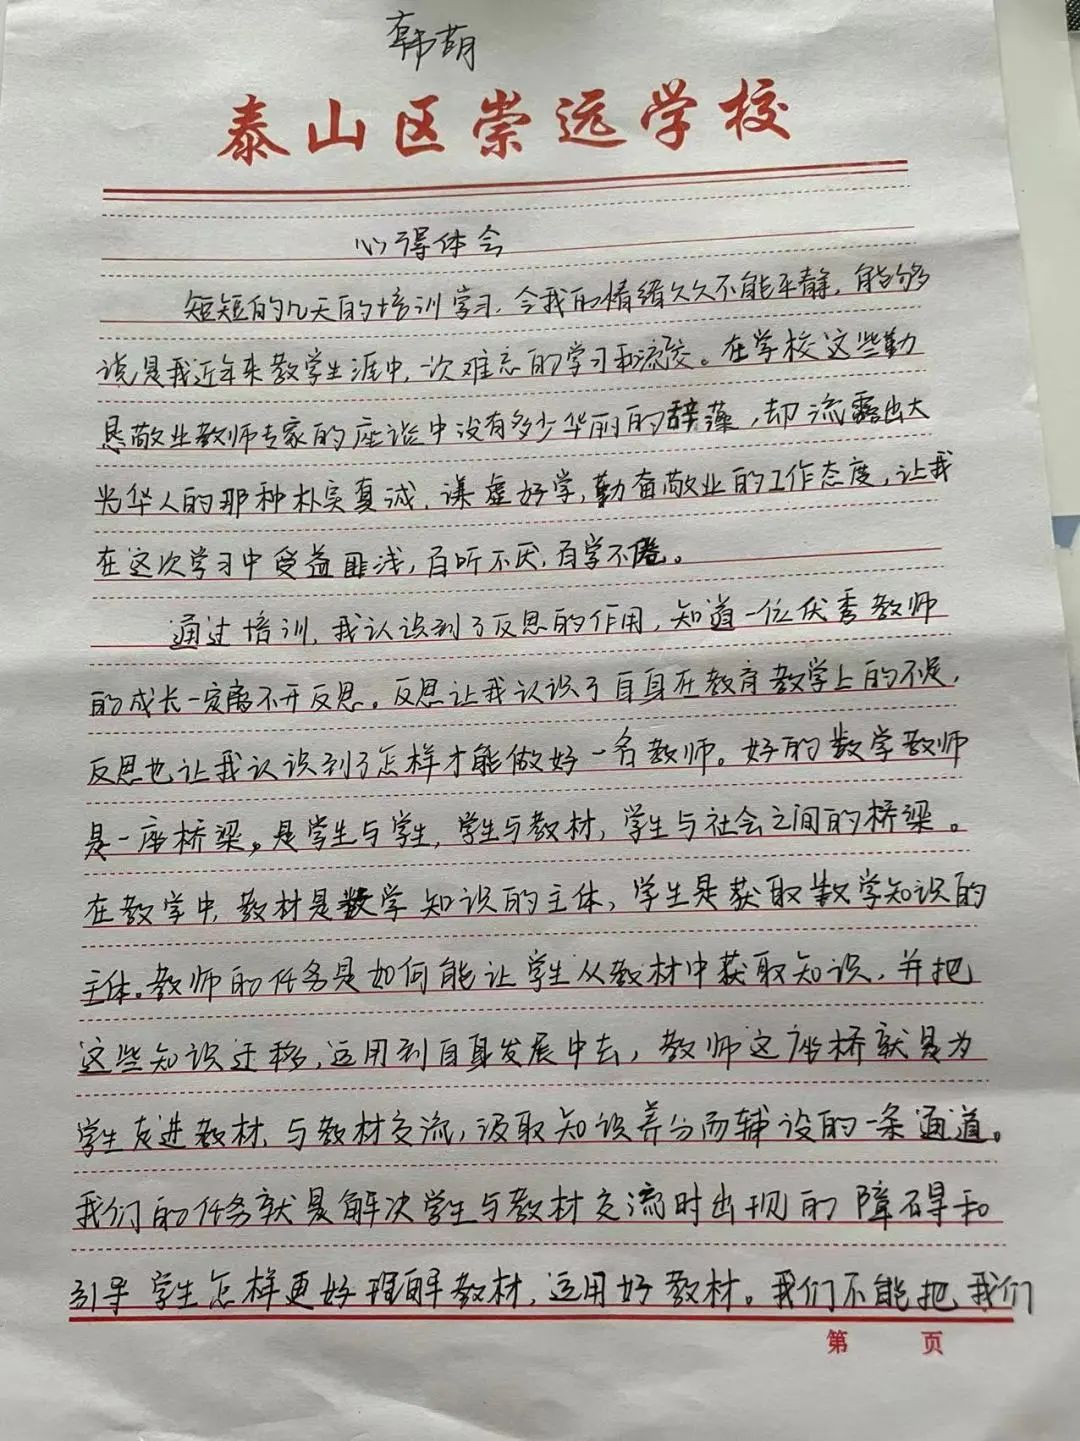 韩萌
泰山区崇远学校
心得体会
短短的几天的培训学习,令我的情绪久久不能平静,能够
说是我近年来教学生涯中,一次难忘的学习和流交。在学校这些勤
恳敬业教师专家的座谈中没有多少华丽的辞藻,却流露出大
为华人的那种朴实真诚,谦虚好学,勤奋敬业的工作态度,让我
在这次学习中受益匪浅,百听不厌,百学不倦。
通过培训,我认识到了反思的作用,知道一位优秀教师
的成长一定离不开反思。反思让我认识了自身在教育教学上的不足,
反思也让我认识到了怎样才能做好一名教师。好的数学教师
是一座桥梁,是学生与学生,学生与教材,学生与社会之间的桥梁。
在教学中,教材是数学知识的主体,学生是获取数学知识的
主体。教师的任务是如何能让学生从教材中获取知识,并把
这些知识迁移,运用到自身发展中去,教师这座桥就是为
学生走进教材,与教材交流,汲取知识养分而辅设的一条通道。
我们的任务就是解决学生与教材交流时出现的障碍和
引导学生怎样更好理解教材,运用好教材。我们不能把我们
第 页